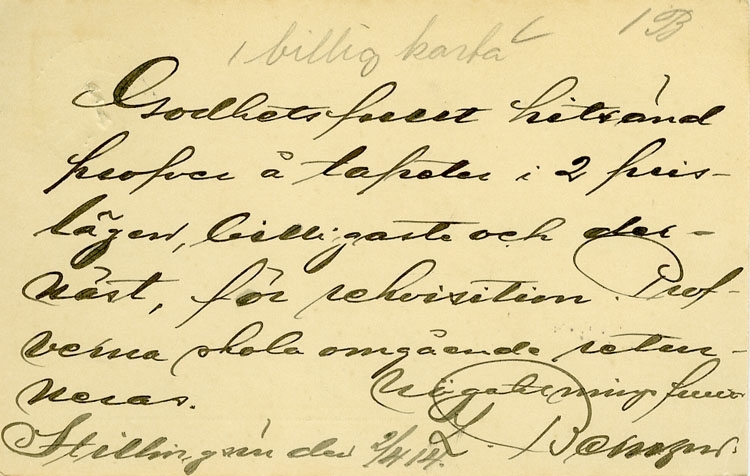 1 billig karta 1 B
Godhetsfullt hitsänd
profver å tapeter i 2 pris-
lägen, billigaste och der-
näst, för rekvisition. Prof-
verna skola omgående retur-
neras. Högaktningsfullt
Stillingsön den 2/4 14.